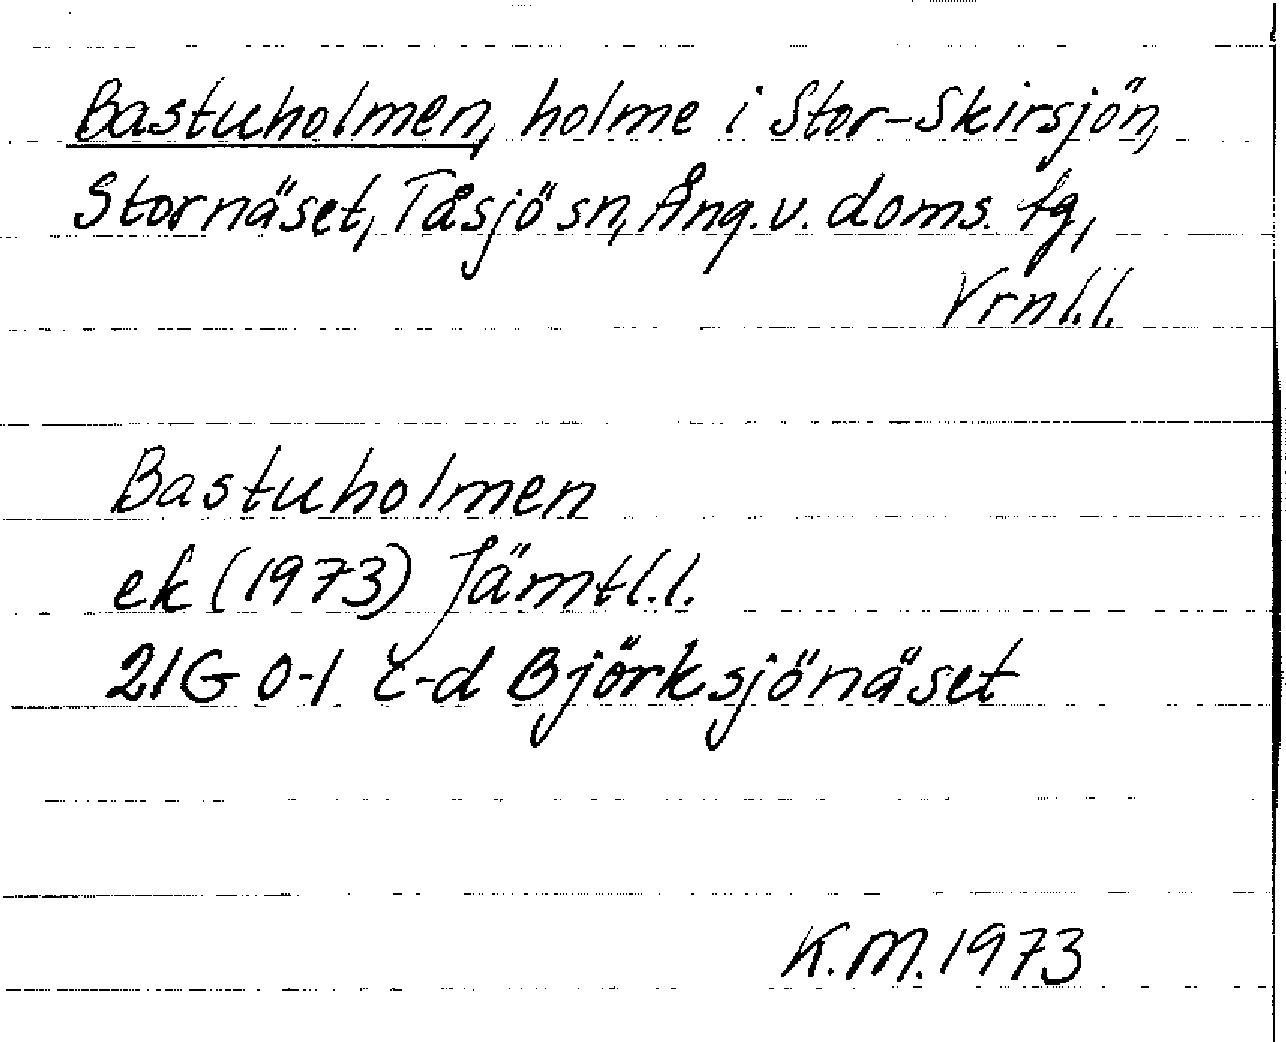 Bastuholmen, holme i Stor-Skirsjön,
Stornäset, Tåsjö sn, Ång. v. doms. tg,
Vrnl.l.
Bastuholmen
ek (1973) Jämtl.l.
21G 0-1 c-d Björksjönäset
K.M. 1973